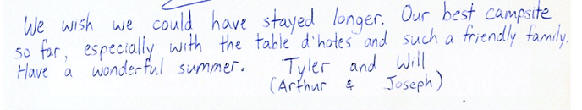 We wish we could have stayed longer. Our best campsite
so far, especially with the table d'hotes and such a friendly family.
Have a wonderful summer. Tyler and Will
(Arthur & Joseph)